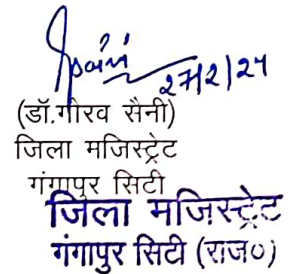 27/2/24
(डॉ.गौरव सैनी)
जिला मजिस्ट्रेट
गंगापुर सिटी
जिला मजिस्ट्रेट
गंगापुर सिटी (राज०)